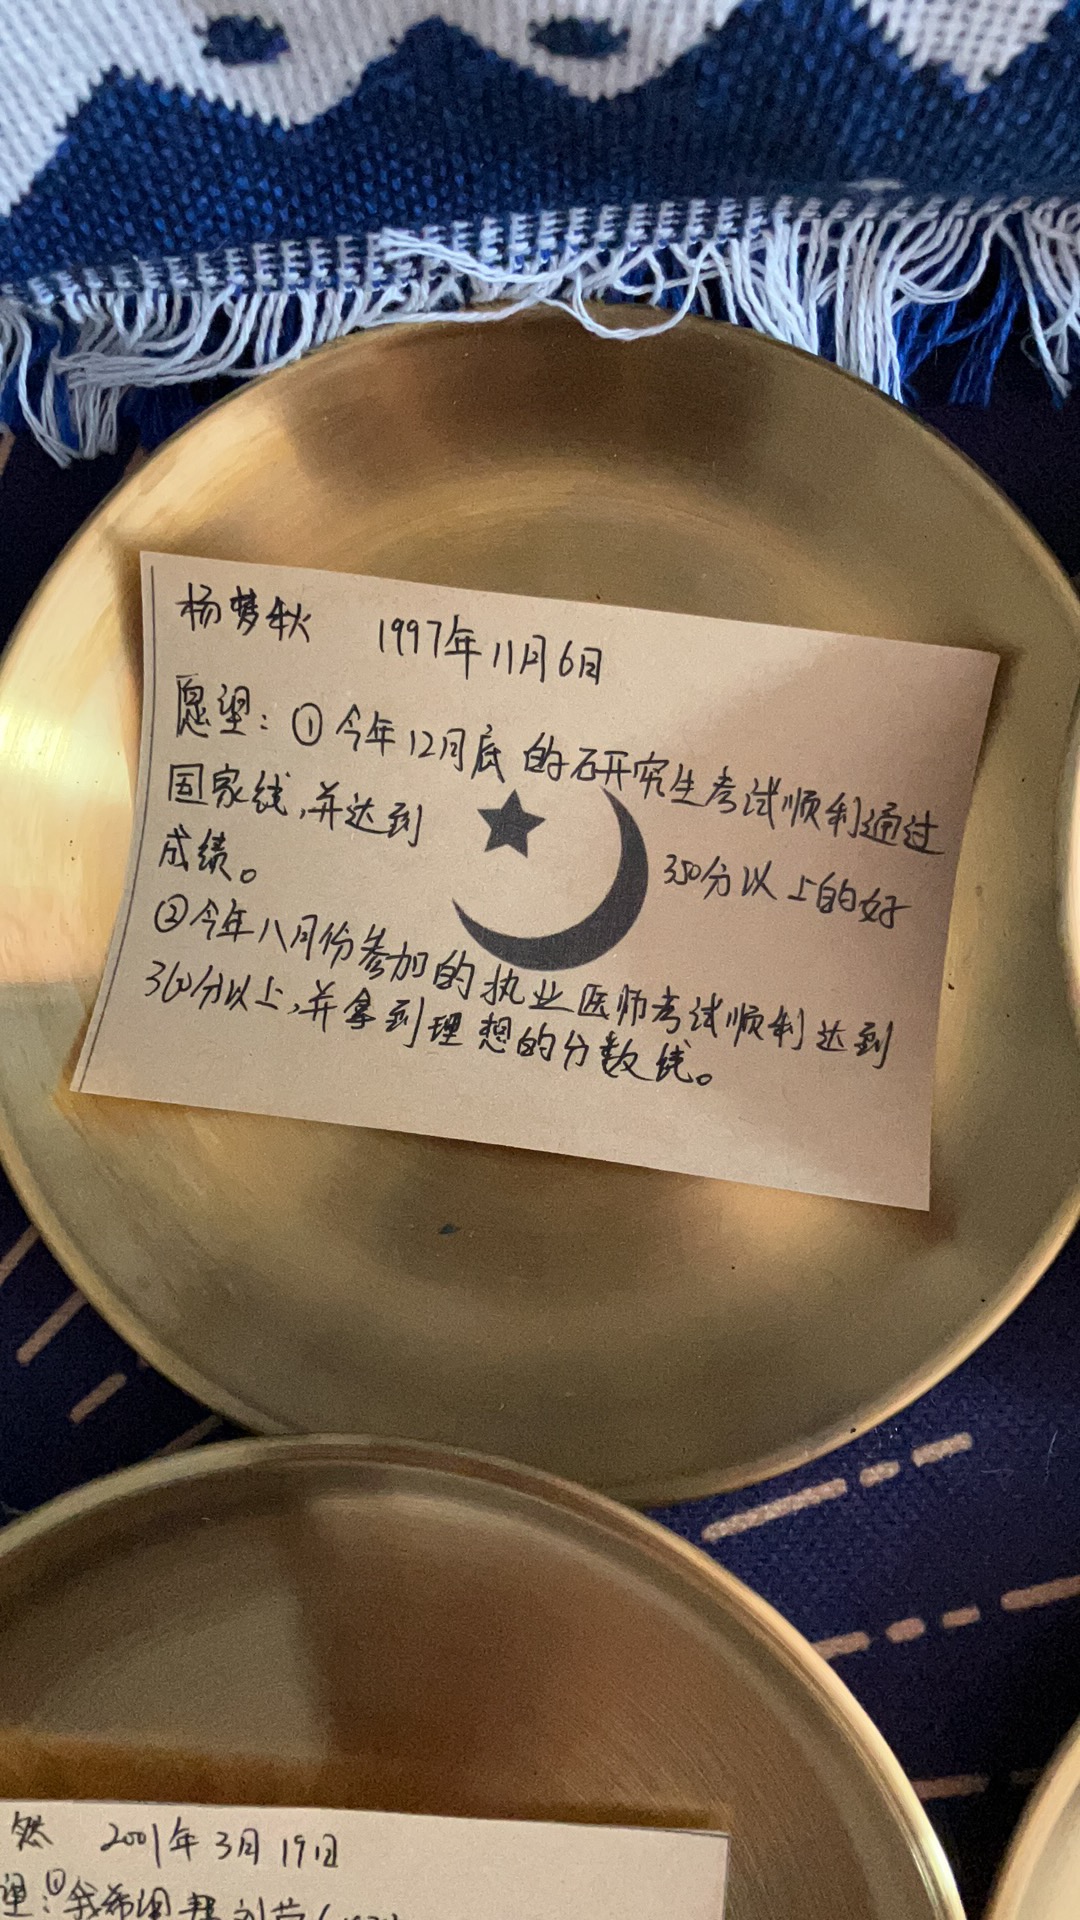 杨梦秋 1997年11月6日
愿望：①今年12月底的研究生考试顺利通过
国家线，并达到 350分以上的好
成绩。
②今年八月份参加的执业医师考试顺利达到
360分以上，并拿到理想的分数线。
然 2001年3月19日
望：①我希望